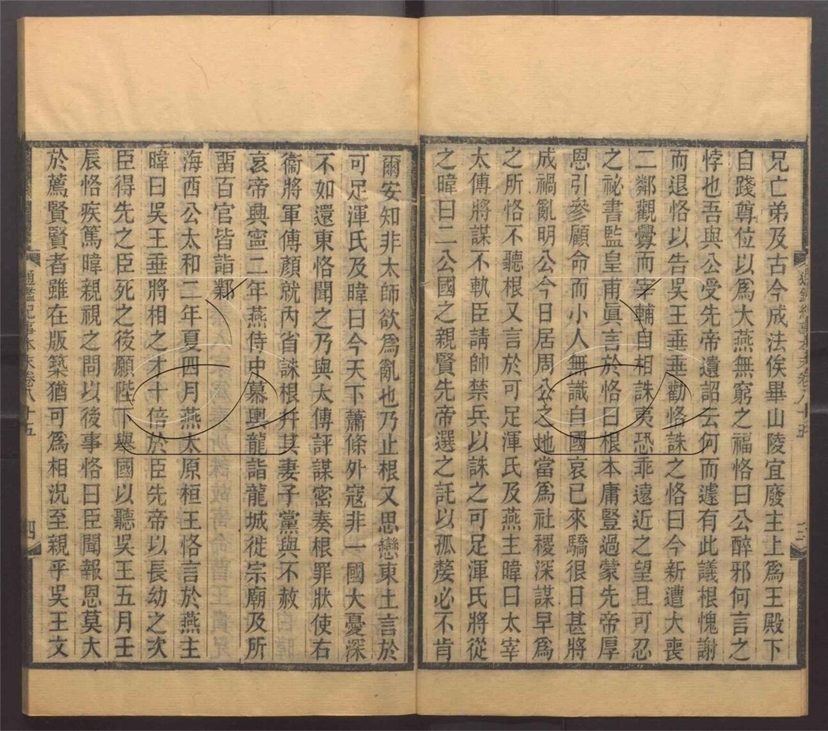 兄亡弟及古今成法俟畢山陵宜廢主上爲王殿下
自踐尊位以爲大燕無窮之福恪曰公醉邪何言之
悖也吾與公受先帝遺詔云何而遽有此議根愧謝
而退恪以告吳王垂垂勸恪誅之恪曰今新遭大喪
二鄰觀釁而宰輔自相誅夷恐乖遠近之望且可忍
之祕書監皇甫眞言於恪曰根本庸豎過蒙先帝厚
恩引參顧命而小人無識自國哀已來驕很日甚將
成禍亂明公今日居周公之地當爲社稷深謀早爲
之所恪不聽根又言於可足渾氏及燕主暐曰太宰
太傅將謀不軌臣請帥禁兵以誅之可足渾氏將從
之暐曰二公國之親賢先帝選之託以孤嫠必不肯
通鑑紀事本末卷八十五
三
爾安知非太師欲爲亂也乃止根又思戀東土言於
可足渾氏及暐曰今天下蕭條外寇非一國大憂深
不如還東恪聞之乃與太傅評謀密奏根罪狀使右
衞將軍傅顏就內省誅根幷其妻子黨與不赦
哀帝興寧二年燕侍中慕輿龍詣龍城徙宗廟及所
留百官皆詣鄴
海西公太和二年夏四月燕太原桓王恪言於燕主
暐曰吳王垂將相之才十倍於臣先帝以長幼之次
臣得先之臣死之後願陛下舉國以聽吳王五月壬
辰恪疾篤暐親視之問以後事恪曰臣聞報恩莫大
於薦賢賢者雖在版築猶可爲相況至親乎吳王文
通鑑紀事本末卷八十五
四